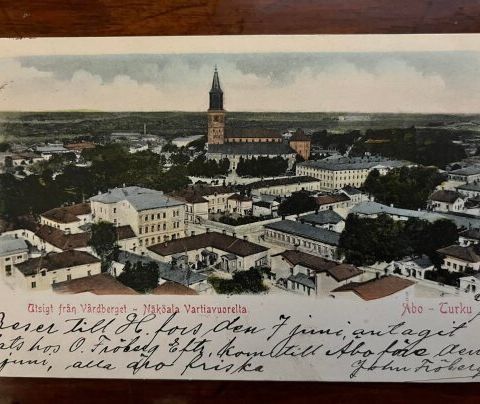 Utsigt från Vårdberget - Näköala Vartiavuorelta.
Åbo - Turku
Reser till H.fors den 7 juni, antagit
plats hos O. Fröberg Eftr, kom till Åbo den
juni, alla äro friska
John Fröberg